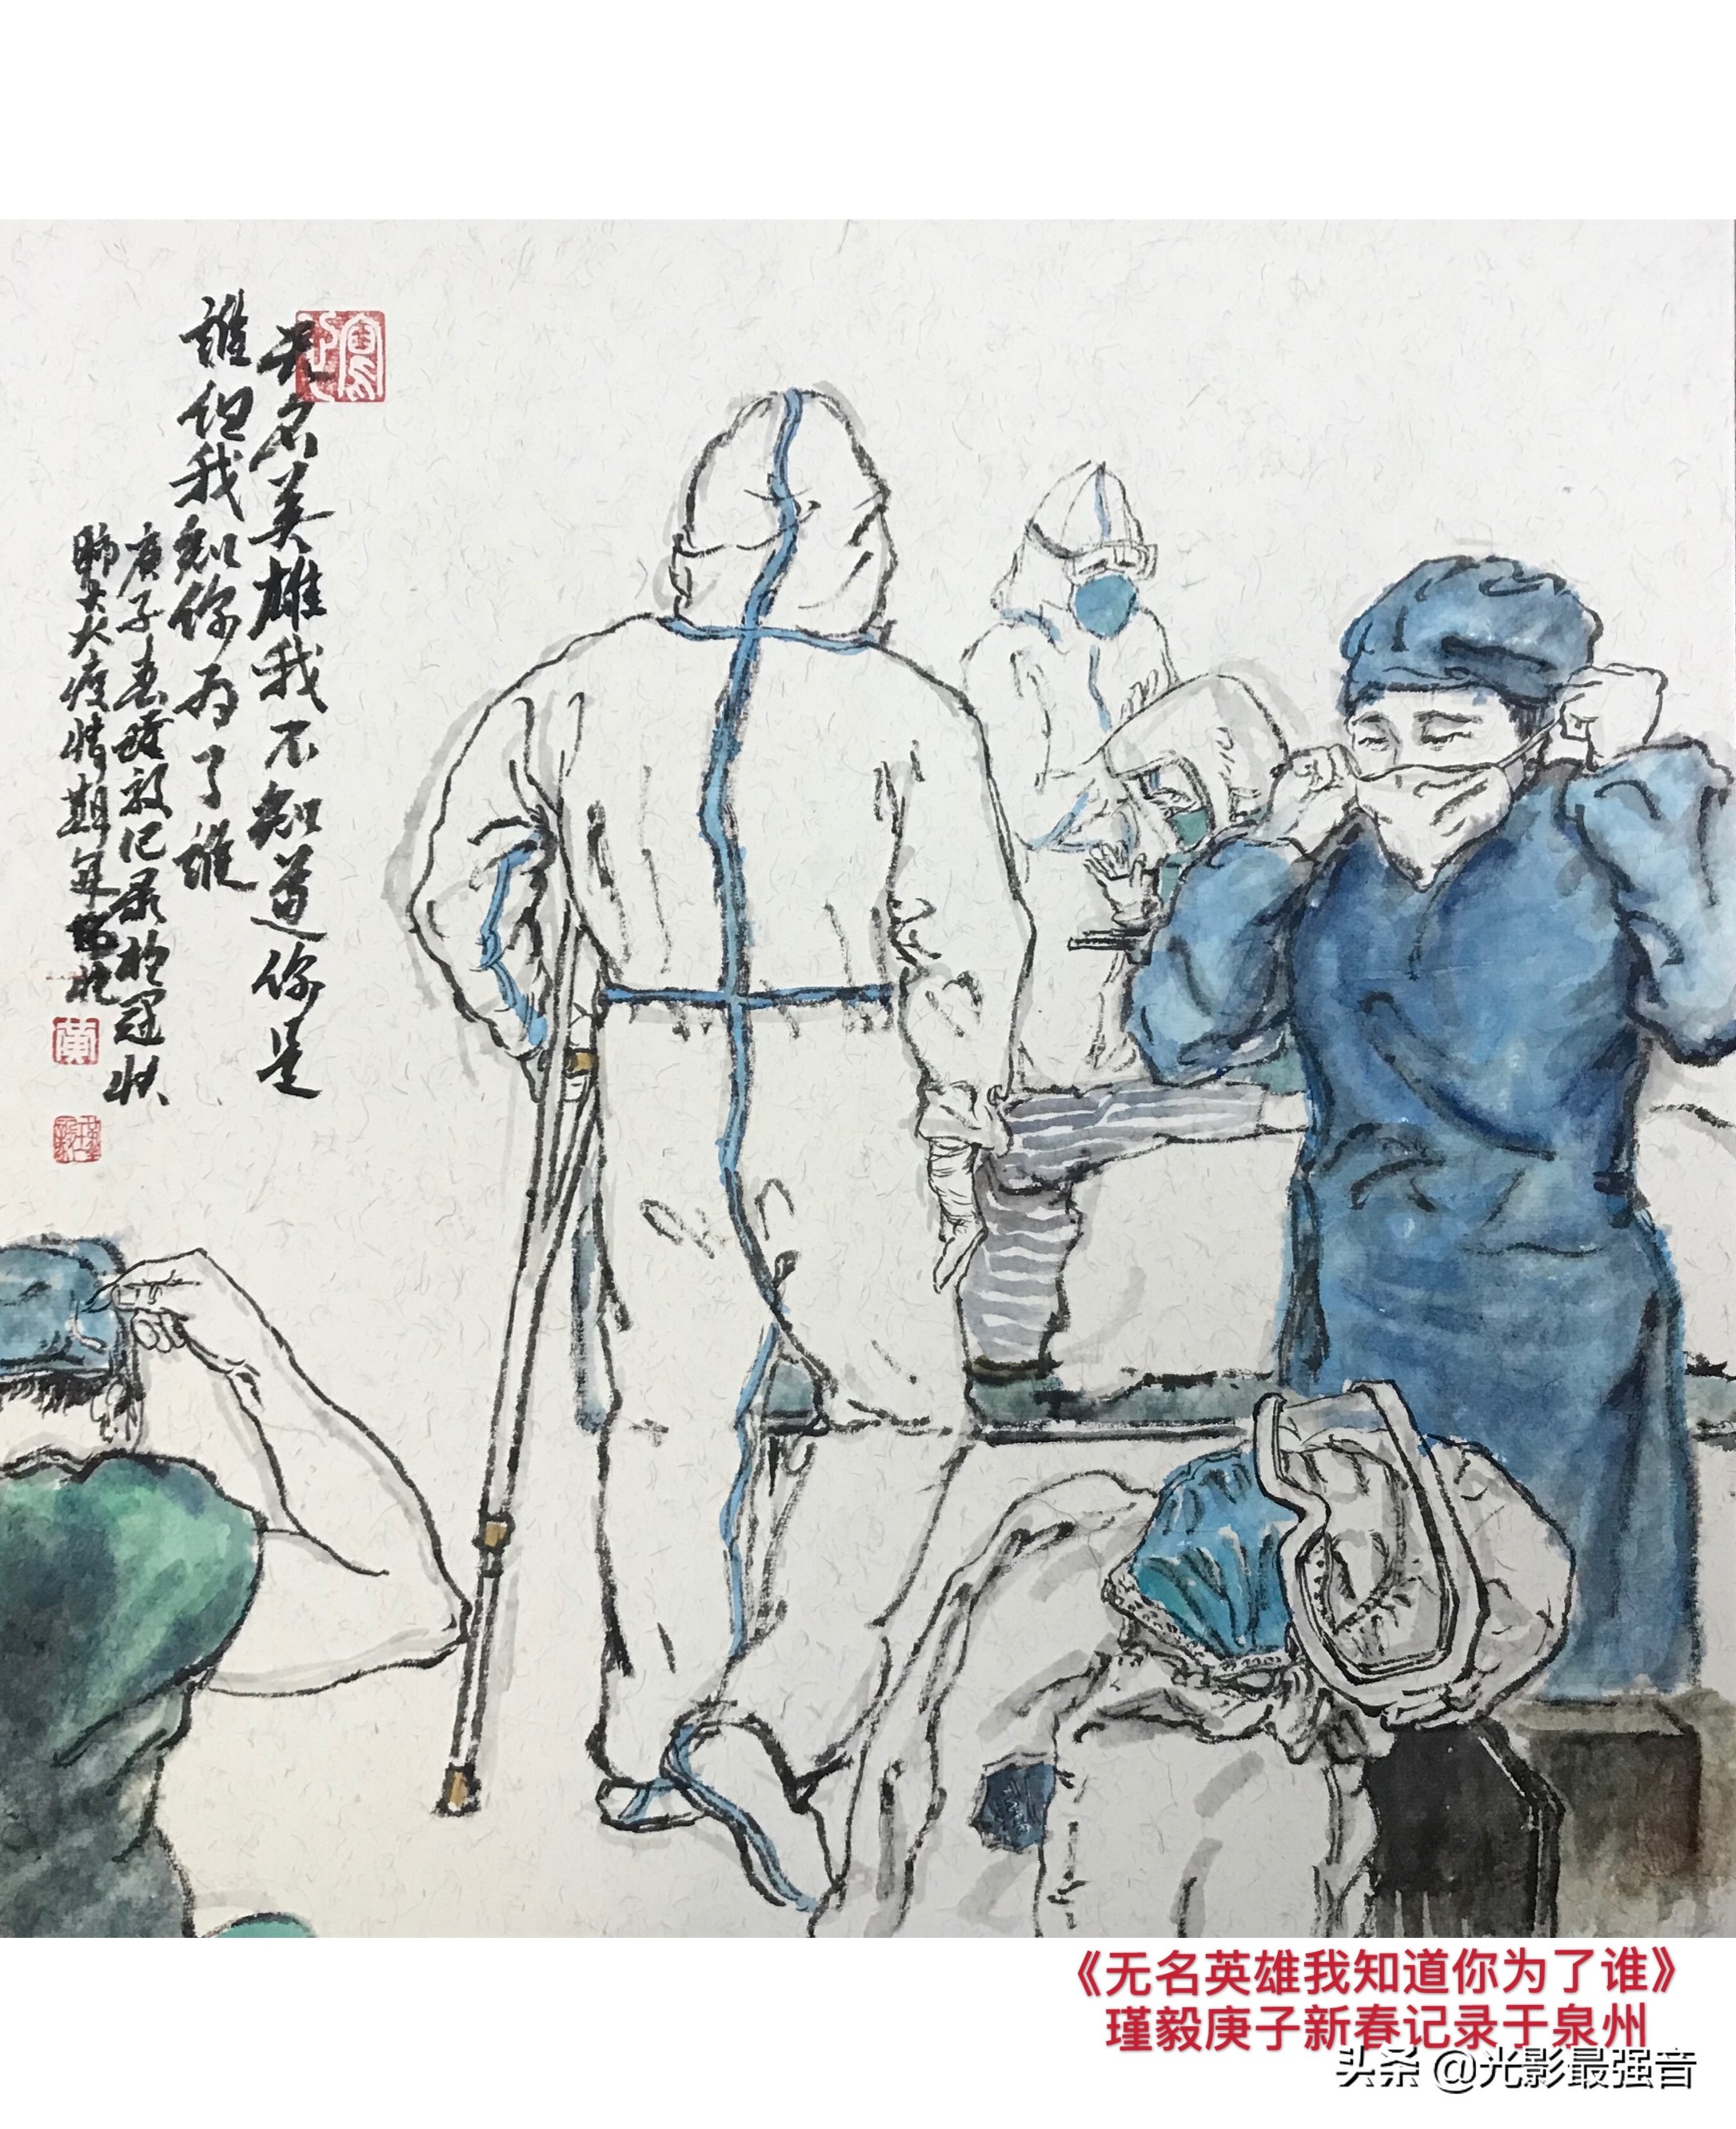 无名英雄我不知道你是
谁但我知你为了谁
庚子春瑾毅记录於冠状
肺炎大疫情期年
《无名英雄我知道你为了谁》
瑾毅庚子新春记录于泉州
头条 @光影最强音